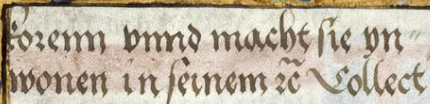 forenn vnnd macht sie yn⸗
wonen in seinem ꝛc̃ Collect